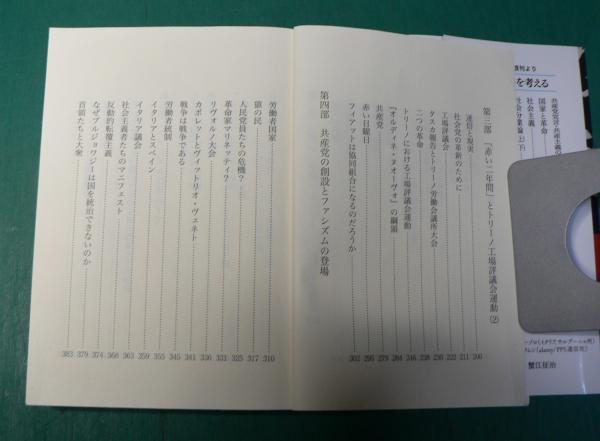 を考える
国家と革命
社会主義
蟹江征治
第三部 「赤い二年間」とトリーノ工場評議会運動(2)
迷信と現実 200
社会党の革新のために 211
工場評議会 222
タスカ報告とトリーノ労働会議所大会 230
二つの革命 238
トリーノにおける工場評議会運動 246
『オルディネ・ヌオーヴォ』の綱領 264
共産党 279
赤い日曜日 295
フィアットは協同組合になるのだろうか 302
第四部 共産党の創設とファシズムの登場
労働者国家 310
猿の民 317
人民党員たちの危機? 325
革命家マリネッティ? 331
リヴォルノ大会 336
カポレットとヴィットリオ・ヴェネト 341
戦争は戦争である 345
労働者統制 355
イタリアとスペイン 359
イタリア議会 363
社会主義者たちのマニフェスト 368
反動的転覆主義 374
なぜブルジョワジーは国を統治できないのか 379
首領たちと大衆 383